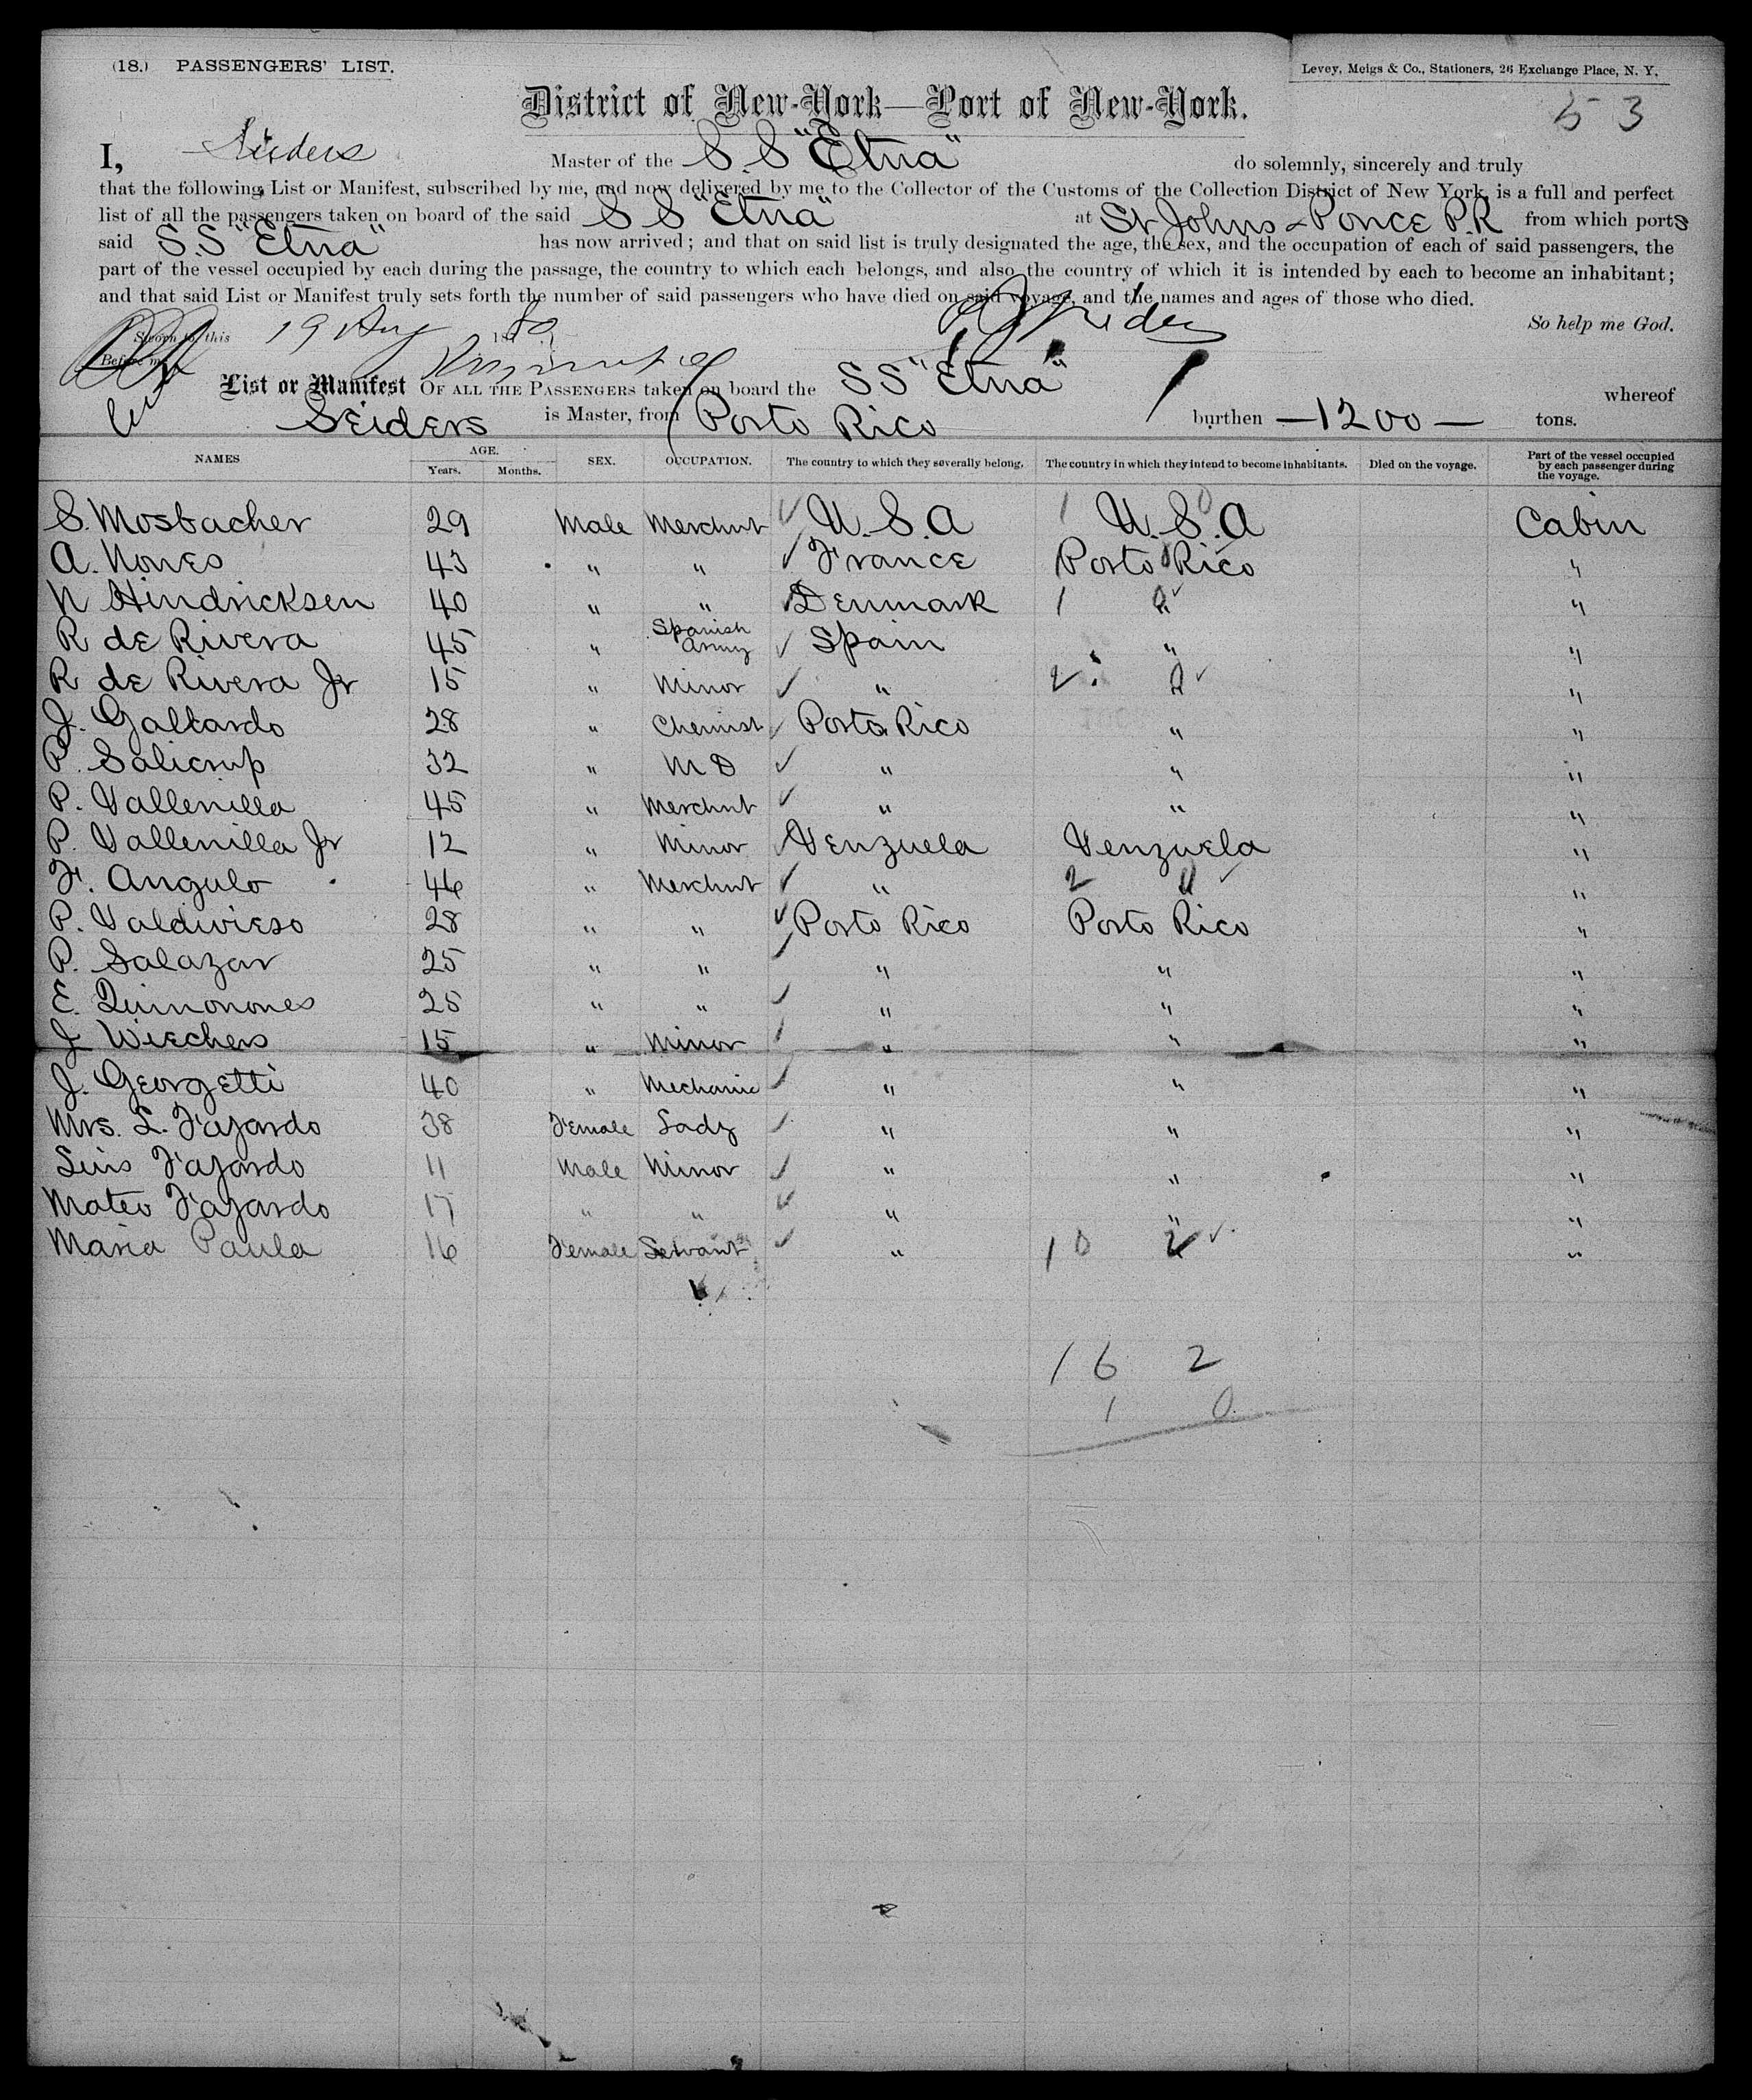 (18.) PASSENGERS' LIST.
Levey, Meigs & Co., Stationers, 26 Exchange Place, N. Y.
District of New-York—Port of New-York.
53
I, Seiders Master of the S.S "Etna" do solemnly, sincerely and truly
that the following List or Manifest, subscribed by me, and now delivered by me to the Collector of the Customs of the Collection District of New York, is a full and perfect
list of all the passengers taken on board of the said S S "Etna" at St Johns & Ponce P.R from which ports
said S.S "Etna" has now arrived; and that on said list is truly designated the age, the sex, and the occupation of each of said passengers, the
part of the vessel occupied by each during the passage, the country to which each belongs, and also the country of which it is intended by each to become an inhabitant;
and that said List or Manifest truly sets forth the number of said passengers who have died on said voyage, and the names and ages of those who died.
So help me God.
Sworn to this 19 Aug 18
Before me
List or Manifest OF ALL THE PASSENGERS taken on board the SS "Etna" whereof
Seiders is Master, from Porto Rico burthen —1200— tons.
NAMES AGE. Years. Months. SEX. OCCUPATION. The country to which they severally belong. The country in which they intend to become inhabitants. Died on the voyage. Part of the vessel occupied by each passenger during the voyage.
S. Mosbacher 29 Male Merchnt U.S.A 1 0 U.S.A Cabin
A. Nones 43 " " France Porto Rico "
N Hindricksen 40 " " Denmark 1 0 " "
R de Rivera 45 " Spanish Army Spain " "
R de Rivera Jr 15 " Minor " 2 0 " "
J. Gallardo 28 " Chemist Porto Rico " "
P. Salicrup 32 " M D " " "
P. Vallenilla 45 " Merchnt " " "
P. Vallenilla Jr 12 " Minor Venzuela Venzuela "
F. Angulo 46 " Merchnt " 2 " "
P. Valdivieso 28 " " Porto Rico Porto Rico "
P. Salazar 25 " " " " "
E. Quinonones 25 " " " " "
J Wiechers 15 " Minor " " "
J. Georgetti 40 " Mechanic " " "
Mrs. L. Fajardo 38 Female Lady " " "
Luis Fajardo 11 Male Minor " " "
Mateo Fajardo 17 " " " " "
Maria Paula 16 Female Servant " 10 2 "
16 2
1 0